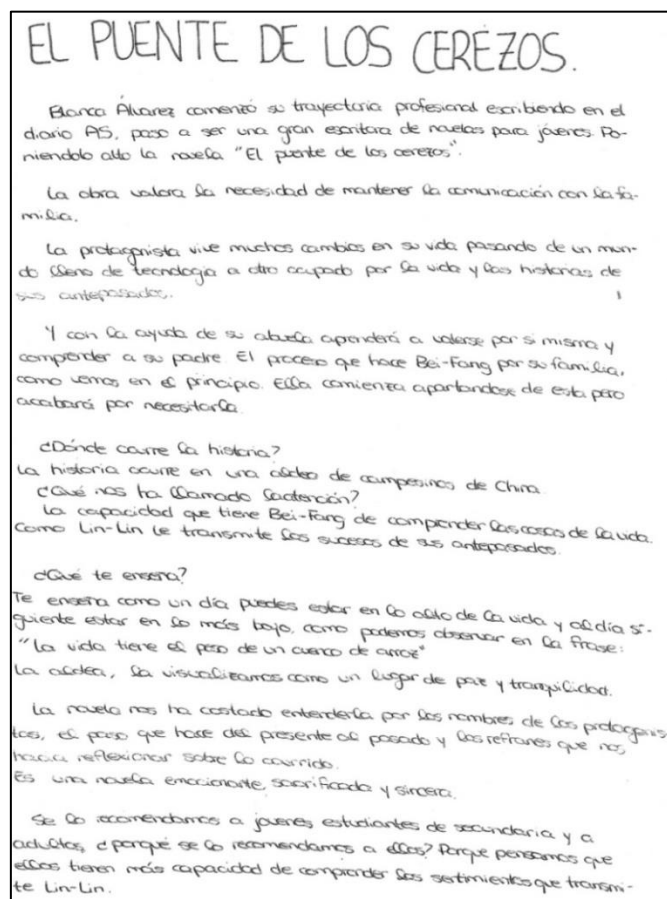 EL PUENTE DE LOS CEREZOS.
Blanca Álvarez comenzó su trayectoria profesional escribiendo en el
diario AS, paso a ser una gran escritora de novelas para jóvenes. Po-
niendolo alto la novela "El puente de los cerezos".
La obra valora la necesidad de mantener la comunicación con la fa-
milia.
La protagonista vive muchos cambios en su vida pasando de un mun-
do lleno de tecnología a otro ocupado por la vida y las historias de
sus antepasados.
Y con la ayuda de su abuela aprenderá a valerse por si misma y
comprender a su padre. El proceso que hace Bei-Fang por su familia,
como vemos en el principio. Ella comienza apartandose de esta pero
acabará por necesitarla.
¿Dónde ocurre la historia?
La historia ocurre en una aldea de campesinos de China.
¿Qué nos ha llamado la atención?
La capacidad que tiene Bei-Fang de comprender las cosas de la vida.
Como Lin-Lin le transmite los sucesos de sus antepasados.
¿Qué te enseña?
Te enseña como un día puedes estar en lo alto de la vida y al día si-
guiente estar en lo más bajo, como podemos observar en la frase:
"La vida tiene el peso de un cuenco de arroz"
La aldea, la visualizamos como un lugar de paz y tranquilidad.
La novela nos ha costado entenderla por los nombres de los protagonis
tas, el paso que hace del presente al pasado y los refranes que nos
hacia reflexionar sobre lo ocurrido.
Es una novela emocionante, sacrificada y sincera.
Se lo recomendamos a jovenes estudiantes de secundaria y a
adultos, ¿porqué se lo recomendamos a ellos? Porque pensamos que
ellos tienen más capacidad de comprender los sentimientos que transmi-
te Lin-Lin.